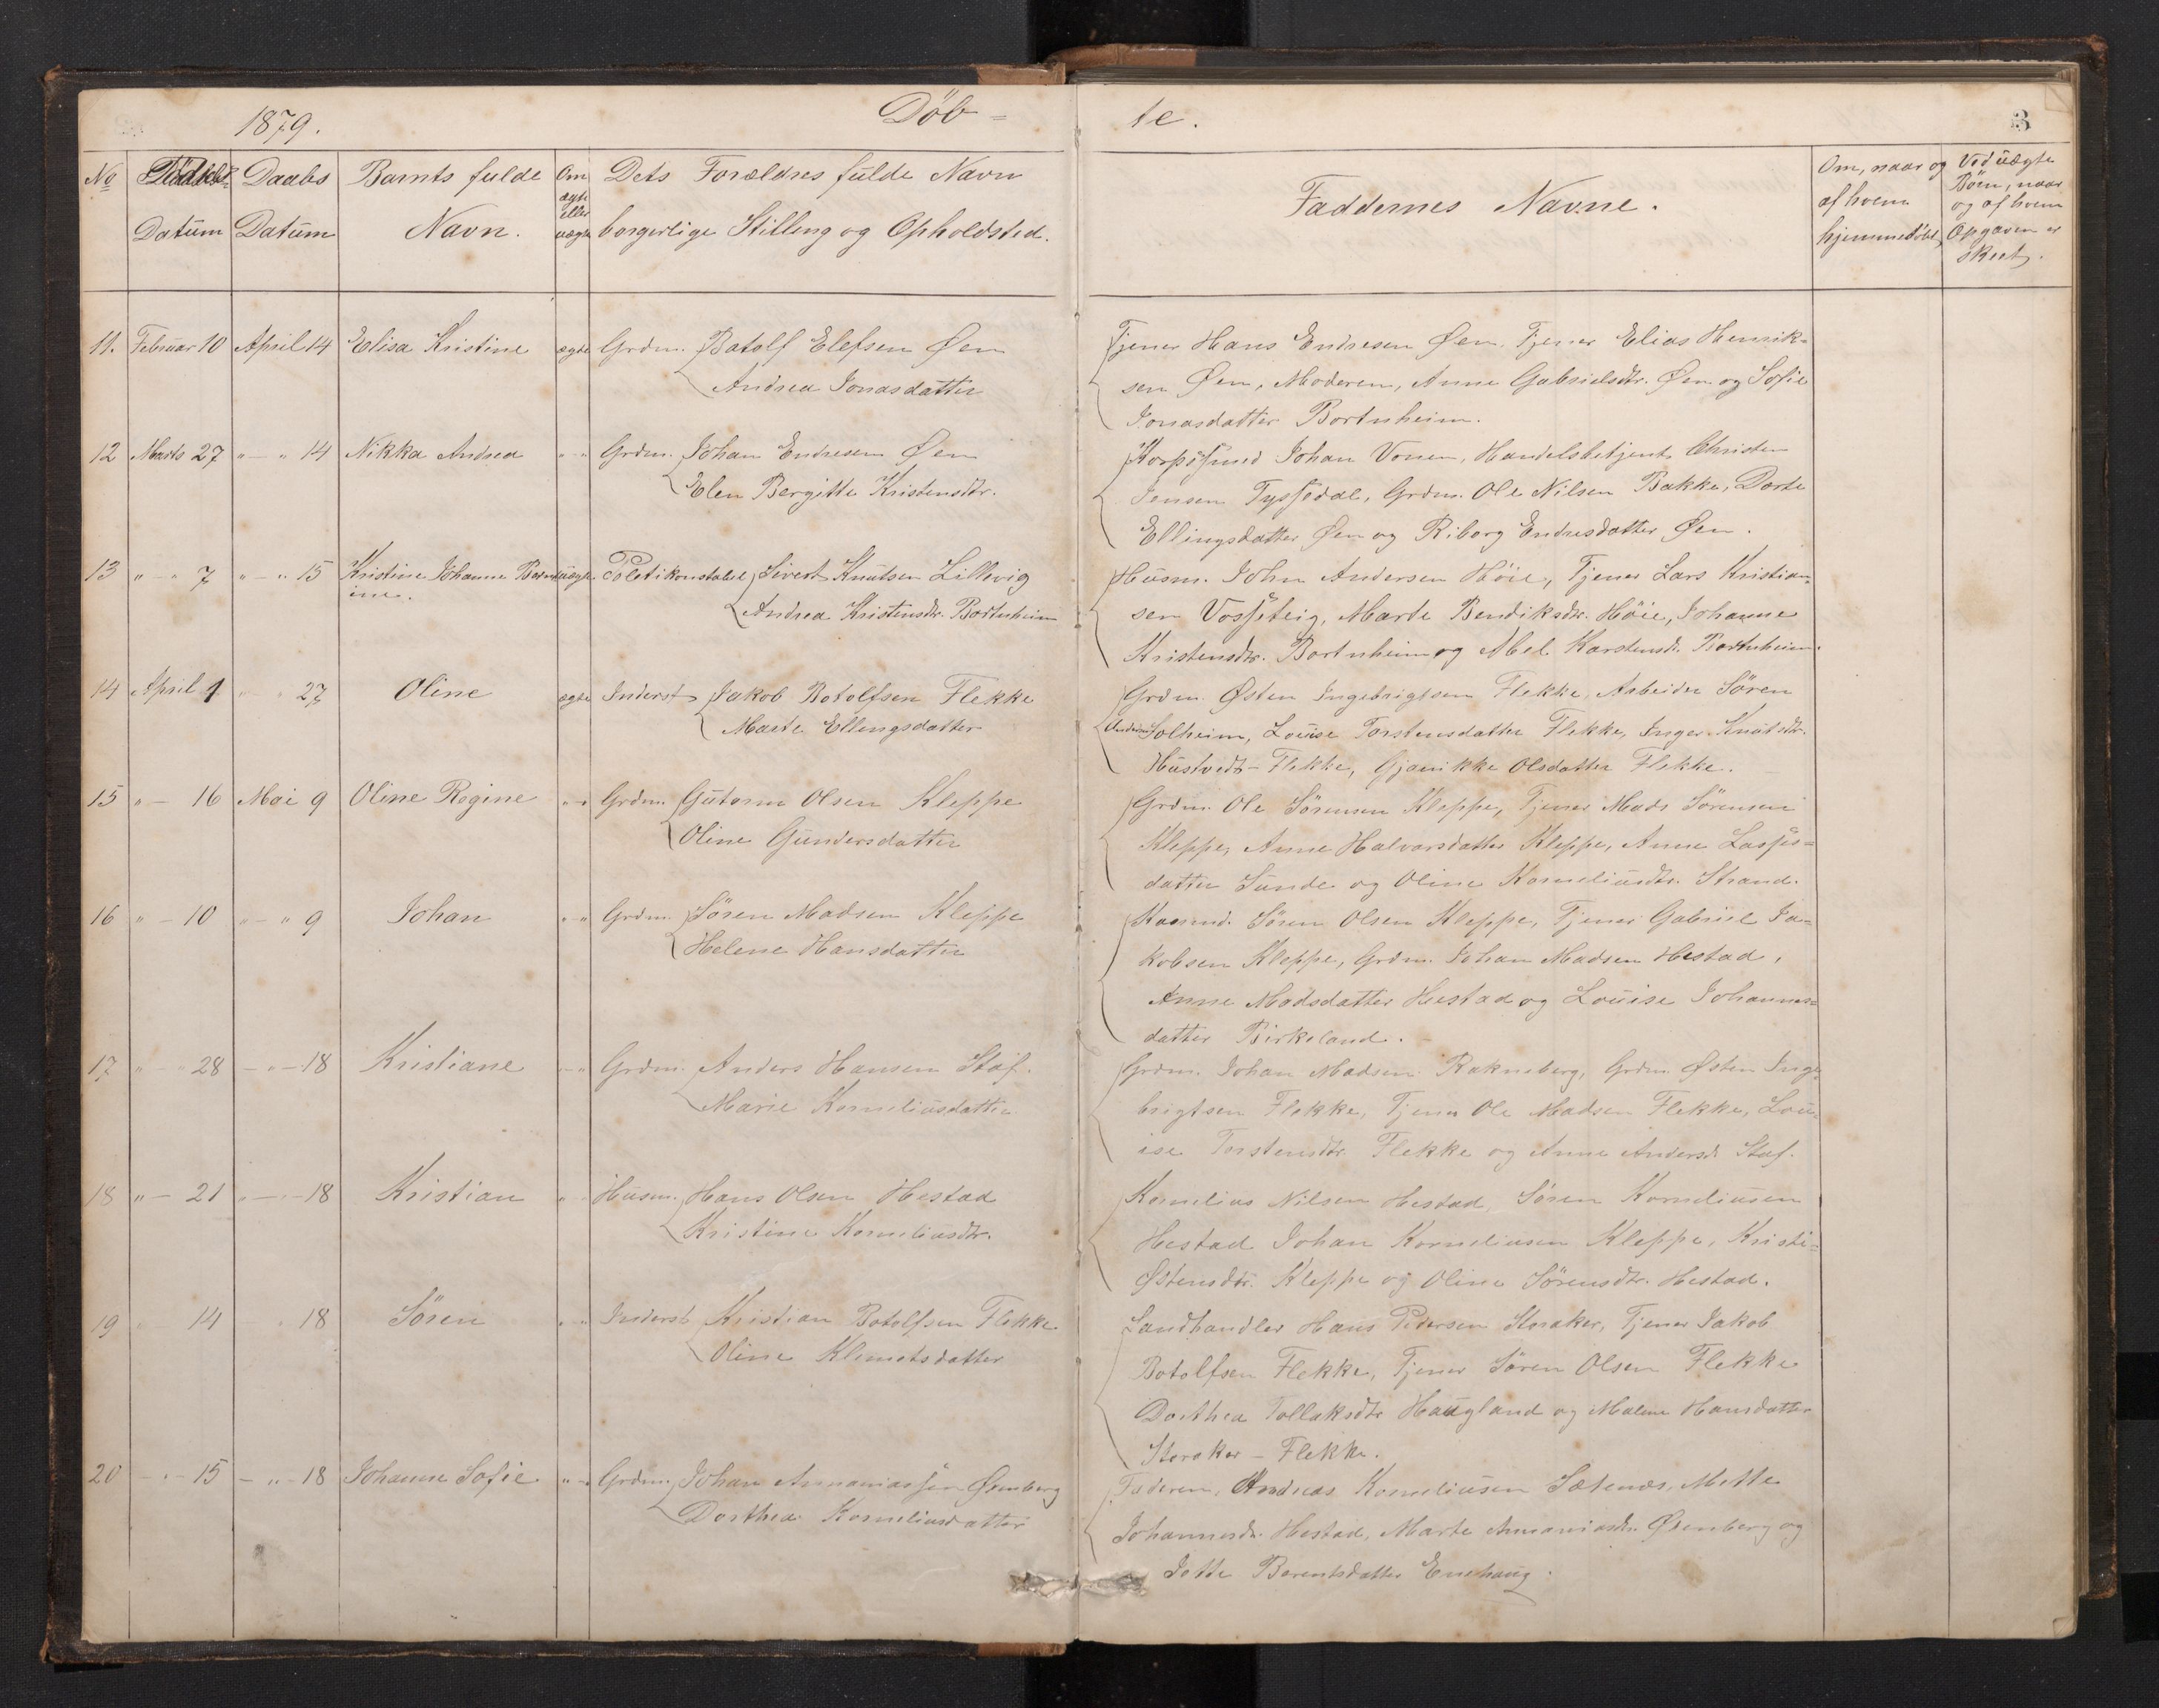 1879. Döb-
te. 3
No Datum Daabs Barnts fulde Om Dets Forældres fulde Navn
Datum Navn. ægte eller uægte borgerlige Stilling og Opholdsted.
Faddernes Navne.
Om, naar og af hvem hjemmedöbt,
Ved uægte Börn, naar og af hvem Opgaven er skeet.
11. Februar 10 April 14 Elisa Kristine ægte Grdm. Batolf Elefsen Øen
Andrea Jonasdatter
Tjener Hans Endresen Øen, Tjener Elias Henrik-
sen Øen, Moderen, Anne Gabrielsdtr. Øen og Sofie
Jonasdatter Bortnheim.
12 Marts 27 " - " 14 Nikka Andrea " - " Grdm. Johan Endresen Øen
Elen Bergitte Kristensdtr.
Johan Vonen, Handelsbetjent Christen
Jensen Tyssedal, Grdm. Ole Nilsen Bakke, Dorte
Ellingsdatter Øen og Riborg Endresdatter Øen.
13 " - " 7 " - " 15 Kristine Johanne Bernt- uægte Politikonstabel Sivert Knutsen Lillevig
ine. Andrea Kristensdtr. Bortnheim
Husm. John Andersen Höie, Tjener Lars Kristian-
sen Vossteig, Marte Bendiksdtr. Höie, Johanne
Kristensdtr. Bortnheim og Abel Karstensdr. Bortnheim.
14 April 1 " " 27 Oline ægte Inderst Jakob Botolfsen Flekke
Marte Ellingsdatter
Grdm. Østen Ingebrigtsen Flekke, Arbeider Sören
Solheim, Louise Torstensdatter Flekke, Inger Knutsdtr.
Hustvedt-Flekke, Gjanikke Olsdatter Flekke.
15 " - 16 Mai 9 Oline Regine " - " Grdm. Gutorm Olsen Kleppe
Oline Gundersdatter
Grdm. Ole Sörensen Kleppe, Tjener Mads Sörensen
Kleppe, Anne Halvarsdatter Kleppe, Anne Lasses-
datter Sunde og Oline Korneliusdtr. Strand.
16 " - 10 " - " 9 Johan " - " Grdm. Sören Madsen Kleppe
Helene Hansdatter
Sören Olsen Kleppe, Tjener Gabriel Ja-
kobsen Kleppe, Grdm. Johan Madsen Hestad,
Anne Madsdatter Hestad og Louise Johannes-
datter Birkeland.
17 " - " 28 - " - 18 Kristiane " - " Grdm. Anders Hansen Staf.
Marie Korneliusdatter
Grdm. Johan Madsen Rakneberg, Grdm. Østen Inge-
brigtsen Flekke, Tjener Ole Madsen Flekke, Lou-
ise Torstensdtr. Flekke og Anne Andersdr. Staf.
18 " - 21 " - " - 18 Kristian " - " Husm. Hans Olsen Hestad
Kristine Korneliusdtr.
Kornelius Nilsen Hestad, Sören Korneliusen
Hestad Johan Korneliusen Kleppe, Kristi-
Østensdtr. Kleppe og Oline Sörensdtr. Hestad.
19 " 14 " 18 Sören " - " Inderst Kristian Botolfsen Flekke
Oline Klemetsdatter
Landhandler Hans Pedersen Storaker, Tjener Jakob
Botolfsen Flekke, Tjener Sören Olsen Flekke
Dorthea Tollaksdtr Haugland og Malene Hansdatter
Storaker - Flekke.
20 - " - 15 - " - 18 Johanne Sofie " - " Grdm. Johan Annaniassen Øenberg
Dorthea Korneliusdatter
Faderen, Andreas Korneliusen Sætenes, Mette
Johannesdr. Hestad, Marte Annaniasdr. Øenberg og
Berentsdatter Enehaug.